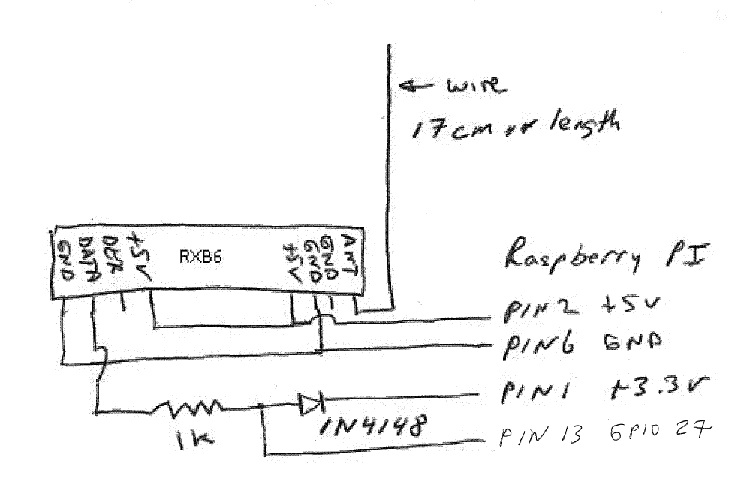 ← wire
17cm in length
GND DATA DER +5V RXB6 +5V GND GND ANT
Raspberry PI
PIN2 +5V
PIN6 GND
PIN1 +3.3V
1K 1N4148
PIN 13 GPIO 27